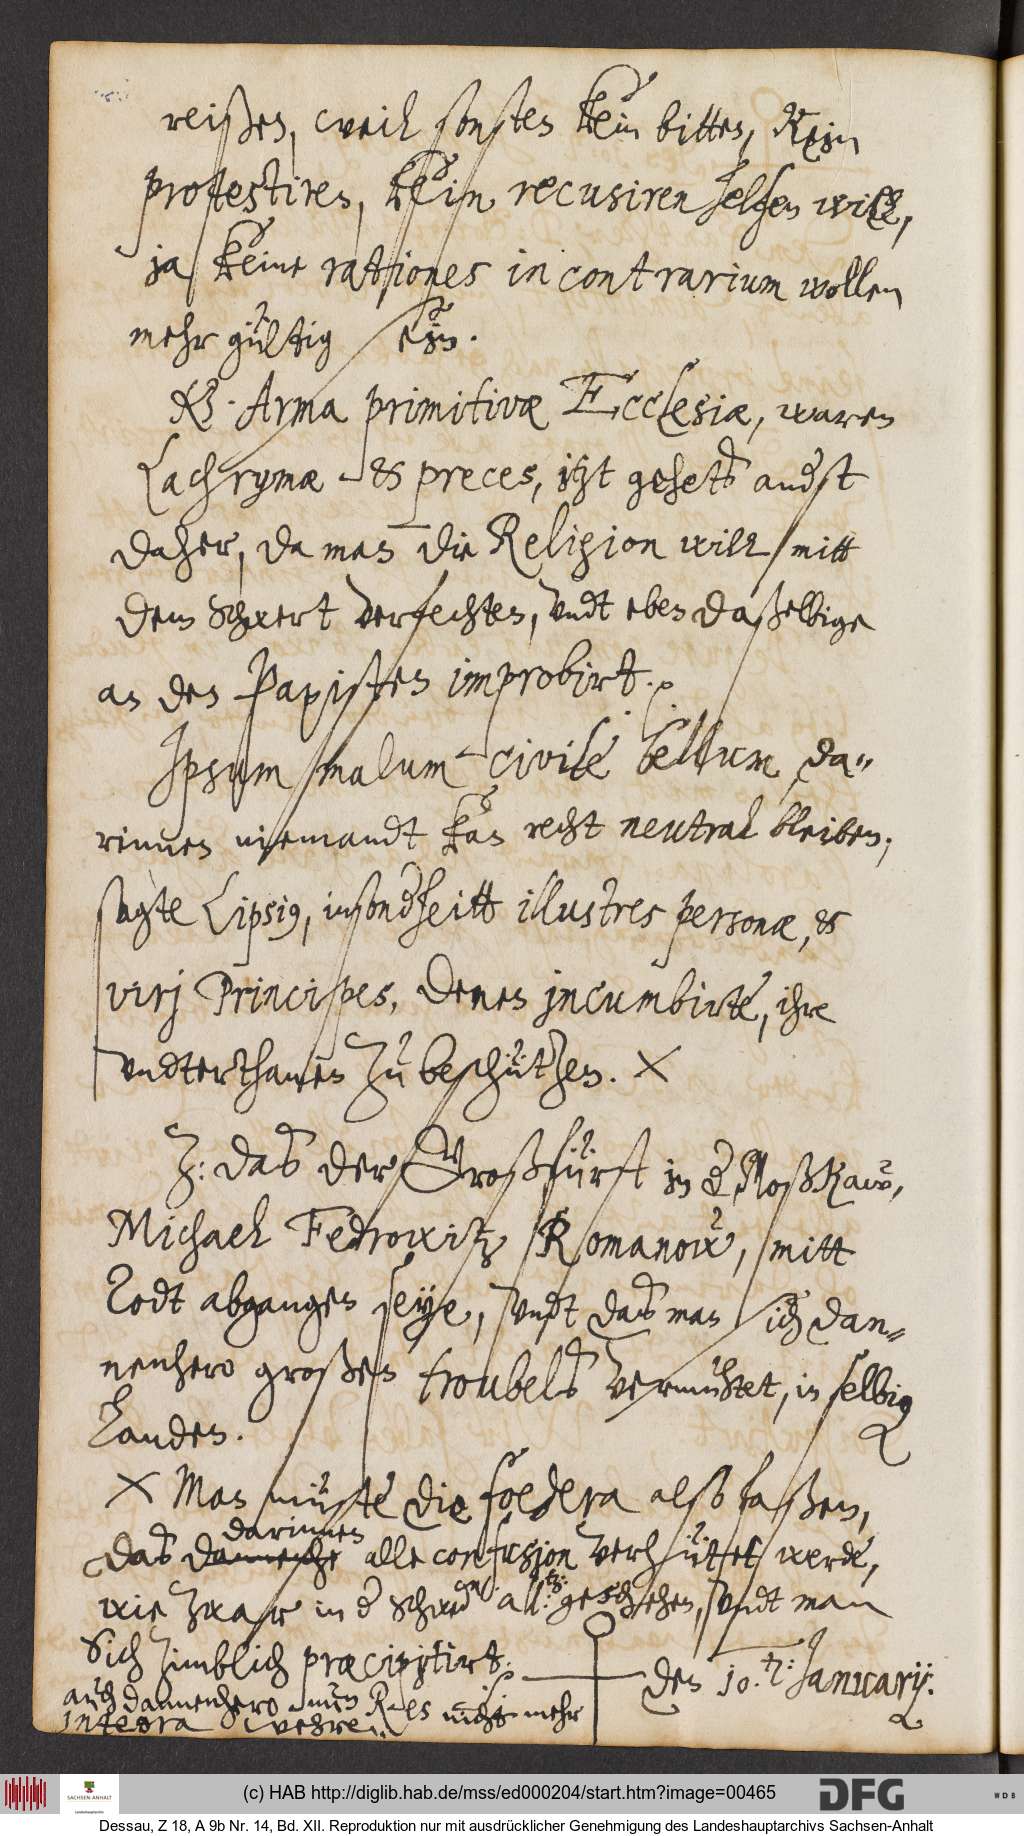 reißen, weil sonsten kein bitten, Kein
protestiren, kein recusiren helfen will,
ja keine rationes in contrarium wollen
mehr gültig sein.
NB. Arma primitivæ Ecclesiæ, waren
Lachrymæ & preces, itzt gehets
daher, da man die Religion will mitt
dem Schwert verfechten, undt eben daßelbige
an den Papisten improbirt.
Ipsum malum civile bellum, da-
rinnen niemandt kan recht neutral bleiben,
sagte Lipsius, insonderheitt illustres personæ, &
virj Principes, denen jncumbirte, ihre
undterthanen zu beschützen. X
Z: das der Großfürst in der Moßkaw,
Michael Fedrowitz Romanow, mitt
Todt abgangen seye, undt das man sich dan-
nenhero großen troubels vermuhtet, in selbigen
Landen.
X Man müste die foedera also faßen,
darinnen
das alle confusion verhüttet werde,
wie zwar in der Schweden all: geschehen, undt man
Sich zimblich præcipitirt.
auch dannenhero nun R es nicht mehr
integra wehre
den 10. Januarij.
(c) HAB http://diglib.hab.de/mss/ed000204/start.htm?image=00465
SACHSEN-ANHALT
Landeshauptarchiv
DFG
WDB
Dessau, Z 18, A 9b Nr. 14, Bd. XII. Reproduktion nur mit ausdrücklicher Genehmigung des Landeshauptarchivs Sachsen-Anhalt